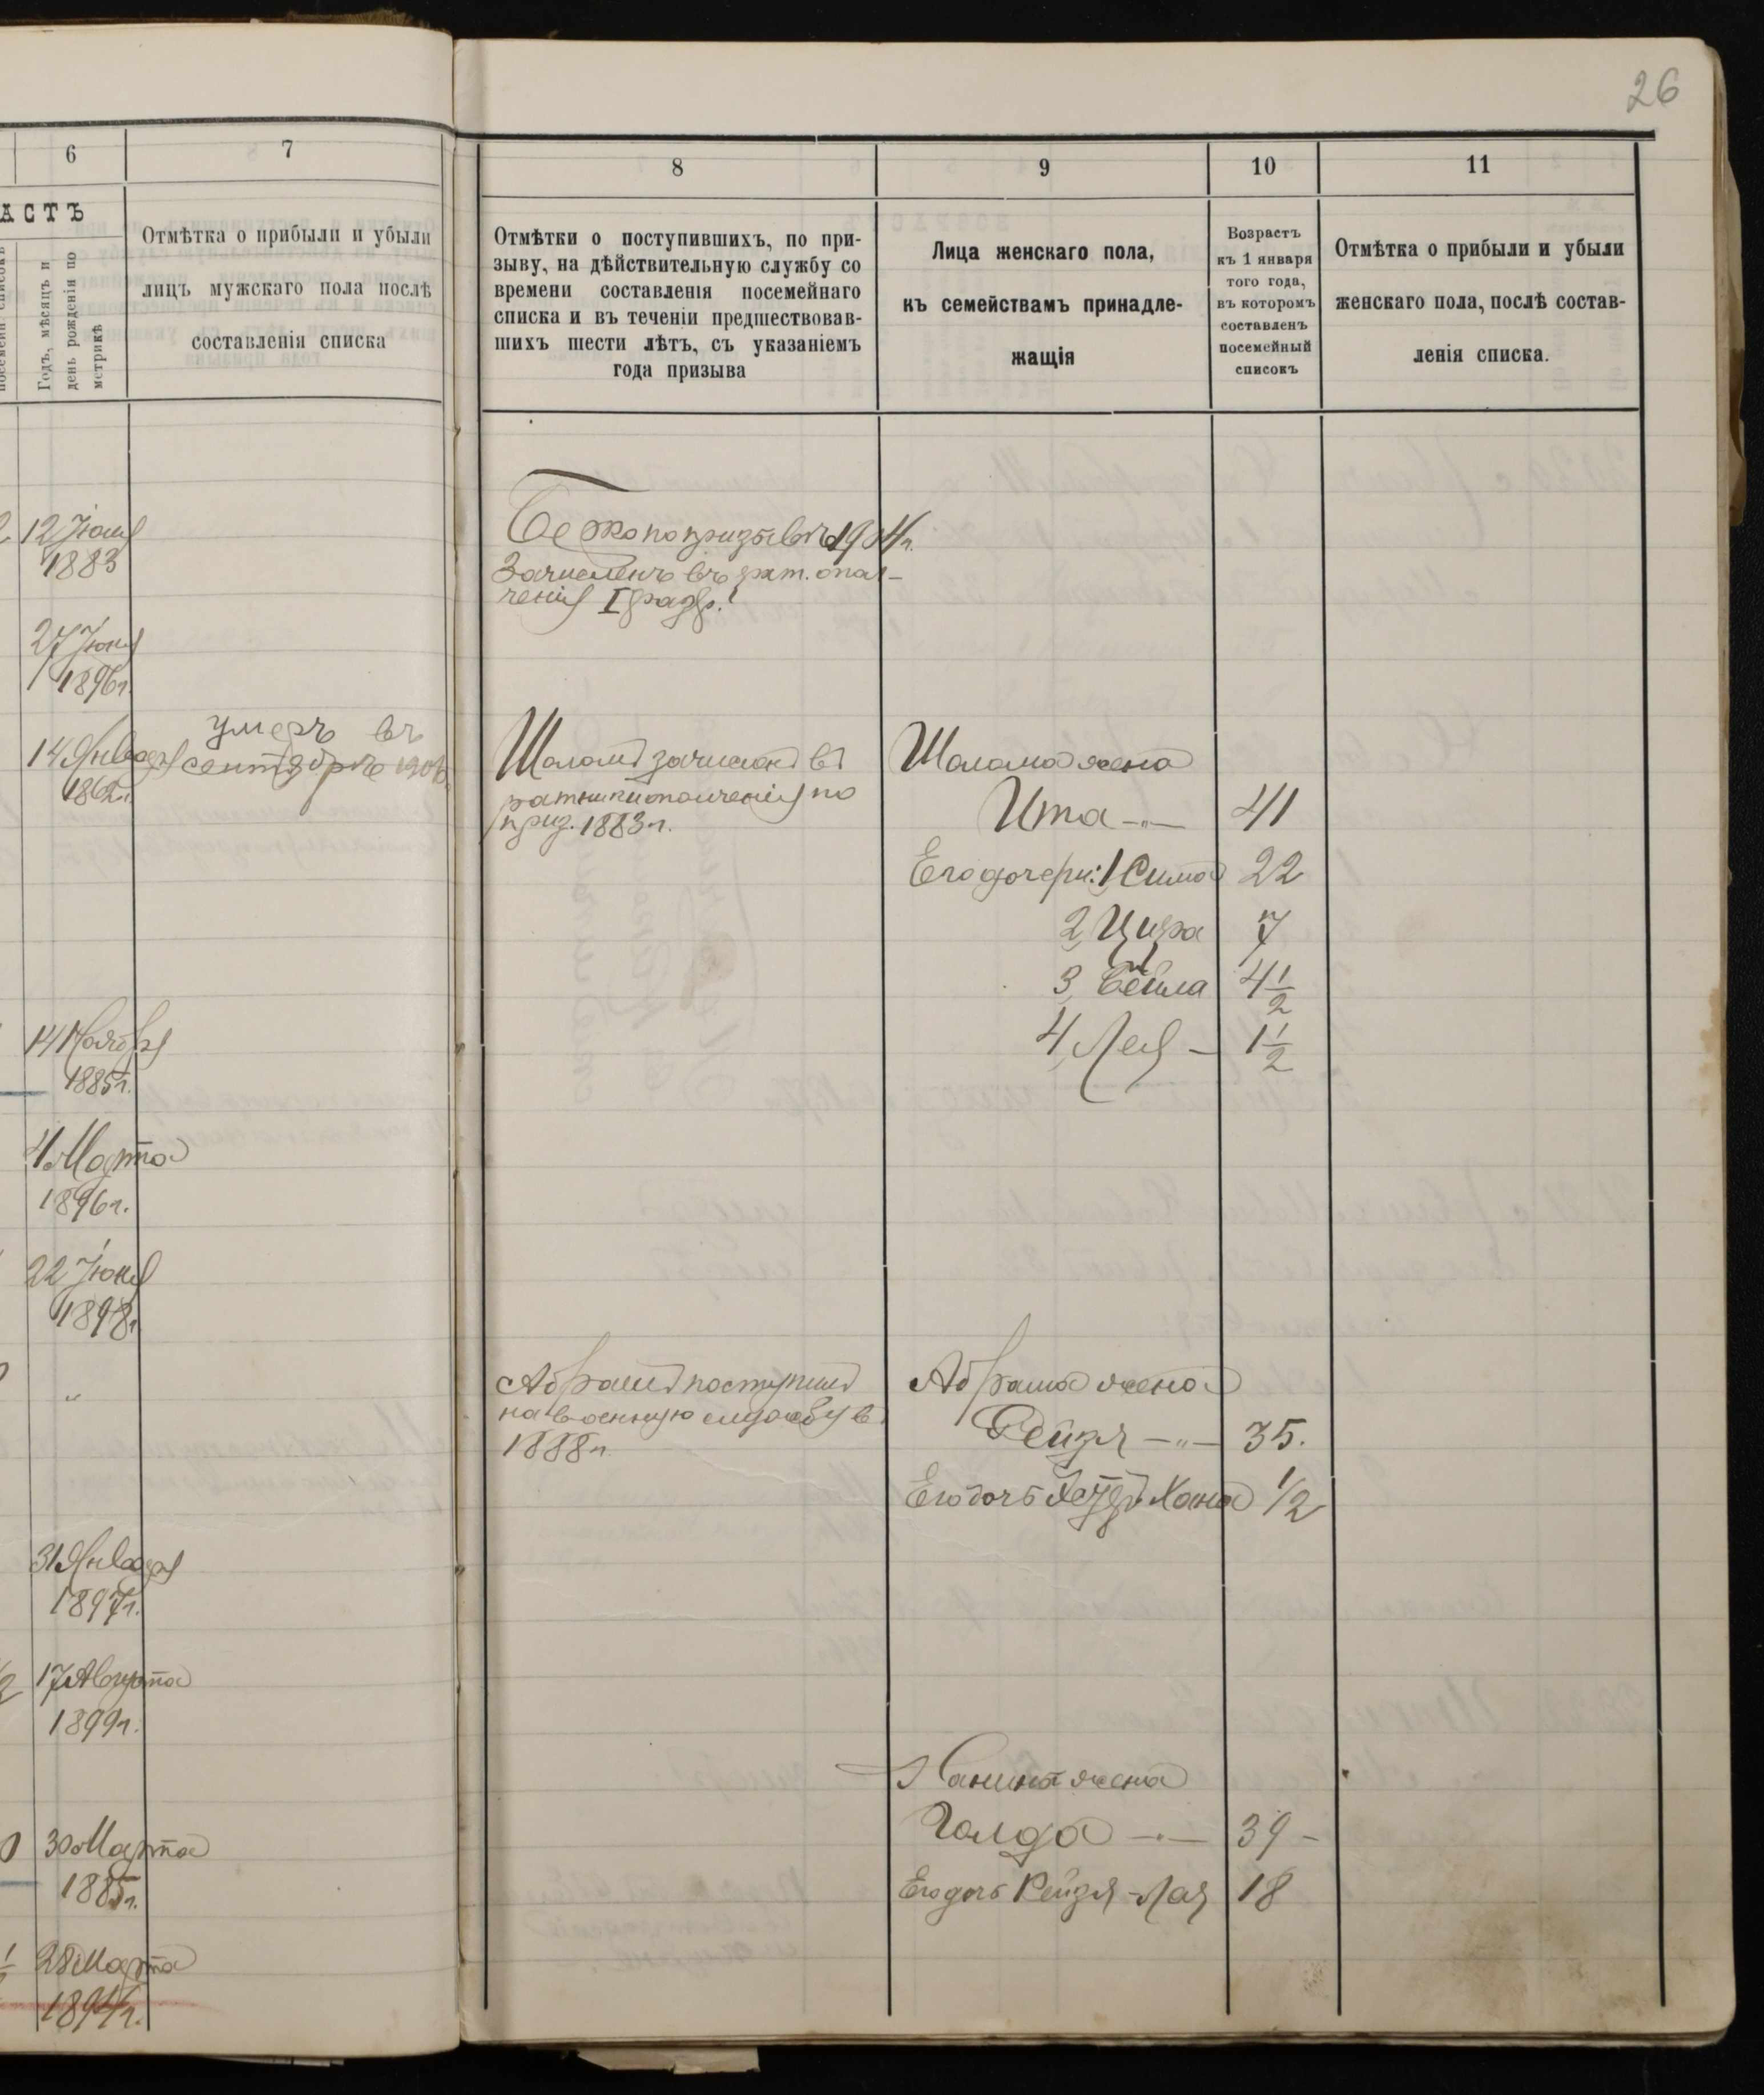 26
6
7
АСТЪ
Годъ, мѣсяцъ и
день рожденія по
метрикѣ
Отмѣтка о прибыли и убыли
лицъ мужскаго пола послѣ
составленія списка
12 Іюля
1883
27 Іюня
1896г.
14 Января
186
умеръ въ
сентябрѣ 190
14 Ноября
1885г.
4 Марта
1896г.
22 Іюня
1898г
"
31 Января
1897г.
17 Августа
1899г.
30 Марта
1885г.
28 Марта
1894г.
8
9
10
11
Отмѣтки о поступившихъ, по при-
зыву, на дѣйствительную службу со
времени составленія посемейнаго
списка и въ теченіи предшествовав-
шихъ шести лѣтъ, съ указаніемъ
года призыва
Лица женскаго пола,
къ семействамъ принадле-
жащія
Возрастъ
къ 1 января
того года,
въ которомъ
составленъ
посемейный
списокъ
Отмѣтка о прибыли и убыли
женскаго пола, послѣ состав-
ленія списка.
Берко по призыву 1904г.
Зачисленъ въ рат. опол-
ченія I разр.
Шаломъ зачисленъ въ
ратники ополченія по
приз. 1883г.
Шалома жена
Ита -"- 41
Его дочери: 1 Сима 22
2 Цира 7
3 Бейла 4 1/2
4 Лея - 1 1/2
Абрамъ поступилъ
на военную службу в
1888г.
Абрама жена
Рейзя -"- 35.
Его дочь Хана 1/2
Ханина жена
Голда -"- 39 -
Его дочь Рейзя-Лая 18